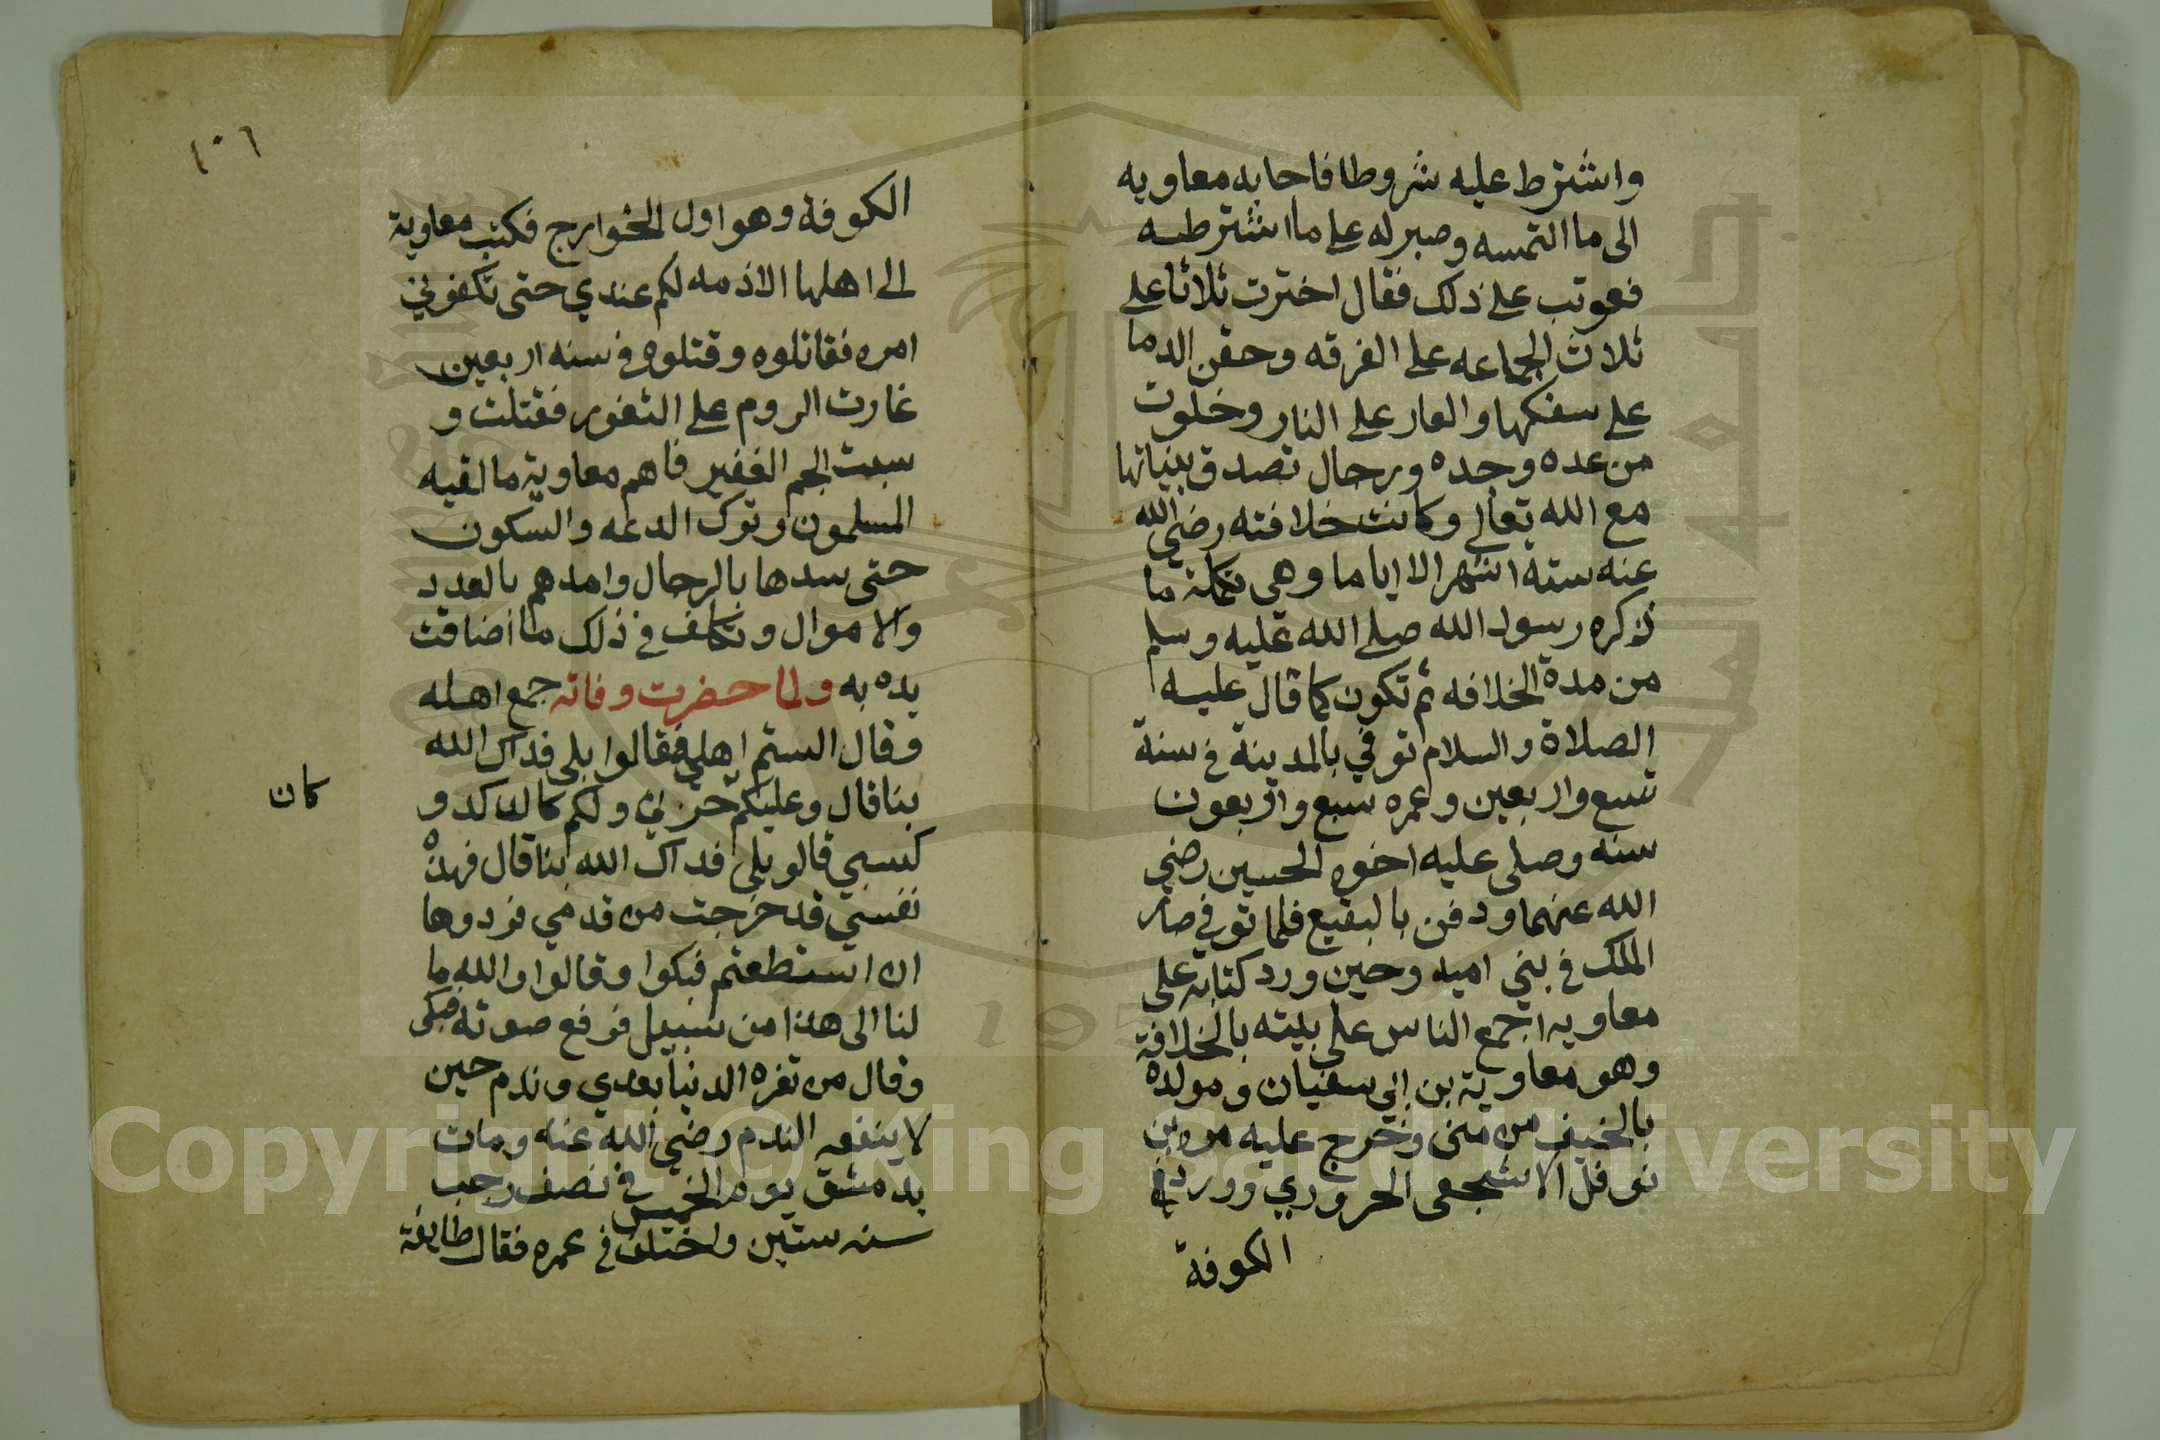 واشترط عليه شروطا فاجابه معاويه
الى ما التمسه وصبر له على ما اشترطه
فعوتب على ذلك فقال اخترت ثلاثا على
ثلاث الجماعه على الفرقه وحقن الدما
على سفكها والعار على النار وخلوت
من عده وجده ورجال تصدق بنياتها
مع الله تعالى وكانت خلافته رضي الله
عنه ستة اشهر الا اياما وهي تكملة ما
ذكره رسول الله صلى الله عليه وسلم
من مدة الخلافه ثم تكون كما قال عليه
الصلاة والسلام توفي بالمدينة في سنة
تسع واربعين وعمره سبع واربعون
سنه وصلى عليه اخوه الحسين رضي
الله عنهما ودفن بالبقيع فلما توفي صار
الملك في بني اميه وحين ورد كتابه على
معاويه اجمع الناس على بيته بالخلافة
وهو معاوية بن ابي سفيان ومولده
بالخيف من منى وخرج عليه من بن
نوفل الاشجعى الحروري وورد في
الكوفة
١٠٦
الكوفة وهو اول الخوارج فكتب معاوية
الى اهلها الا ذمه لكم عندي حتى تكفوني
امره فقاتلوه وقتلوه في سنه اربعين
غارت الروم على الثغور فقتلت و
سبت الجم الغفير فاهم معاوية ما لقيه
المسلمون وترك الدعه والسكون
حتى سدها بالرجال وامدهم بالعدد
والاموال وتكلف في ذلك ما اضاقت
يده به ولما حضرت وفاته جمع اهله
وقال الستم اهلي فقالوا بلى فداك الله
بنا قال وعليكم حزني ولكم كان كدو
كسبي قالو بلى فداك الله بنا قال فهذه
نفسي قد خرجت من قدمي فردوها
ان استطعتم فبكوا وقالوا والله ما
لنا الى هذا من سبيل فرفع صوته فبكى
وقال من تغره الدنيا بعدي وندم حين
لا ينفعه الندم رضي الله عنه ومات
بدمشق يوم الخميس في نصف رجب
سنه ستين واختلف في عمره فقال طايفة
كان
Copyright © King Saud University